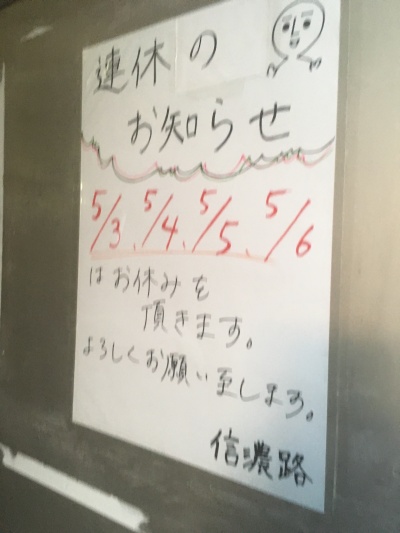 連休の
お知らせ
5/3、5/4、5/5、5/6
はお休みを
頂きます。
よろしくお願い至します。
信濃路